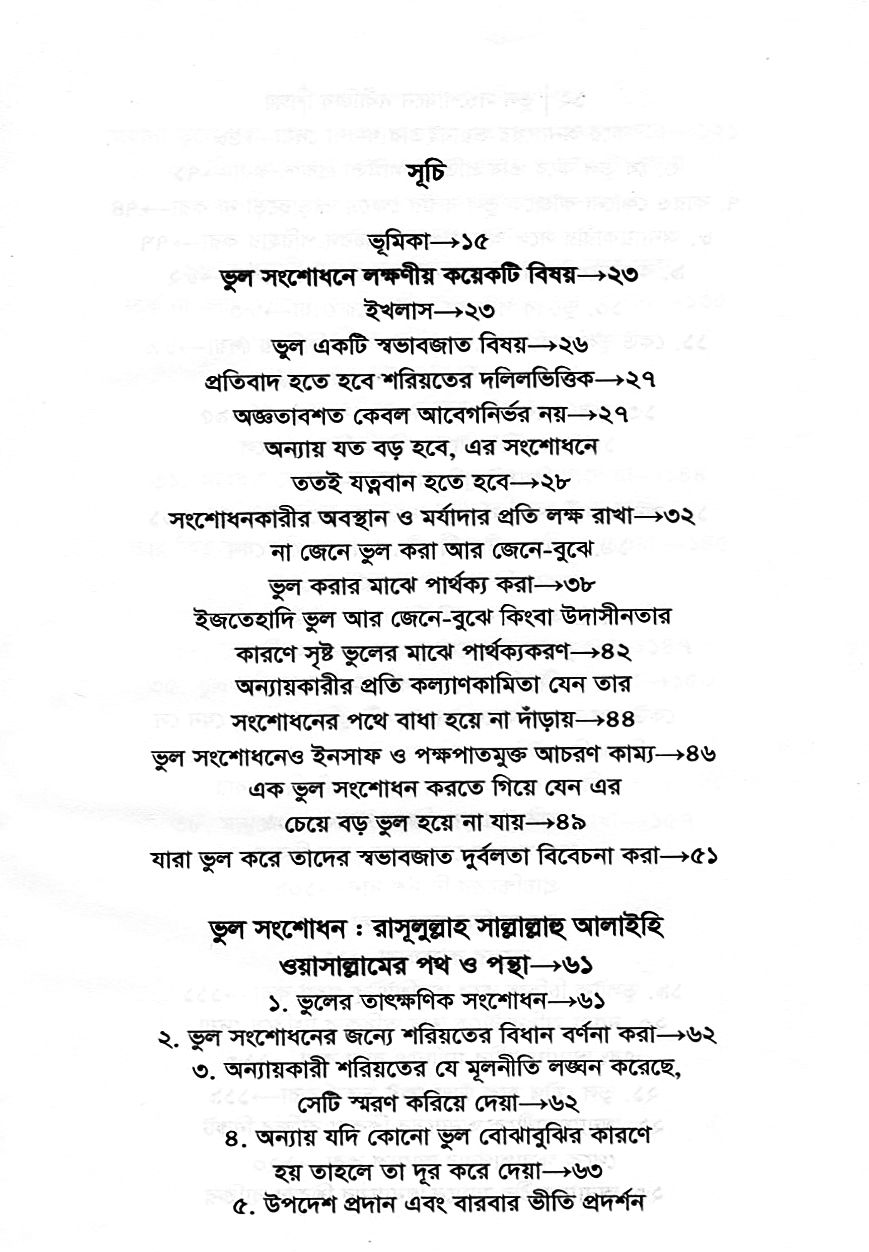 সূচি
ভূমিকা→১৫
ভুল সংশোধনে লক্ষণীয় কয়েকটি বিষয়→২৩
ইখলাস→২৩
ভুল একটি স্বভাবজাত বিষয়→২৬
প্রতিবাদ হতে হবে শরিয়তের দলিলভিত্তিক→২৭
অজ্ঞতাবশত কেবল আবেগনির্ভর নয়→২৭
অন্যায় যত বড় হবে, এর সংশোধনে
ততই যত্নবান হতে হবে→২৮
সংশোধনকারীর অবস্থান ও মর্যাদার প্রতি লক্ষ রাখা→৩২
না জেনে ভুল করা আর জেনে-বুঝে
ভুল করার মাঝে পার্থক্য করা→৩৮
ইজতেহাদি ভুল আর জেনে-বুঝে কিংবা উদাসীনতার
কারণে সৃষ্ট ভুলের মাঝে পার্থক্যকরণ→৪২
অন্যায়কারীর প্রতি কল্যাণকামিতা যেন তার
সংশোধনের পথে বাধা হয়ে না দাঁড়ায়→৪৪
ভুল সংশোধনেও ইনসাফ ও পক্ষপাতমুক্ত আচরণ কাম্য→৪৬
এক ভুল সংশোধন করতে গিয়ে যেন এর
চেয়ে বড় ভুল হয়ে না যায়→৪৯
যারা ভুল করে তাদের স্বভাবজাত দুর্বলতা বিবেচনা করা→৫১
ভুল সংশোধন : রাসূলুল্লাহ সাল্লাল্লাহু আলাইহি
ওয়াসাল্লামের পথ ও পন্থা→৬১
১. ভুলের তাৎক্ষণিক সংশোধন→৬১
২. ভুল সংশোধনের জন্যে শরিয়তের বিধান বর্ণনা করা→৬২
৩. অন্যায়কারী শরিয়তের যে মূলনীতি লঙ্ঘন করেছে,
সেটি স্মরণ করিয়ে দেয়া→৬২
৪. অন্যায় যদি কোনো ভুল বোঝাবুঝির কারণে
হয় তাহলে তা দূর করে দেয়া→৬৩
৫. উপদেশ প্রদান এবং বারবার ভীতি প্রদর্শন